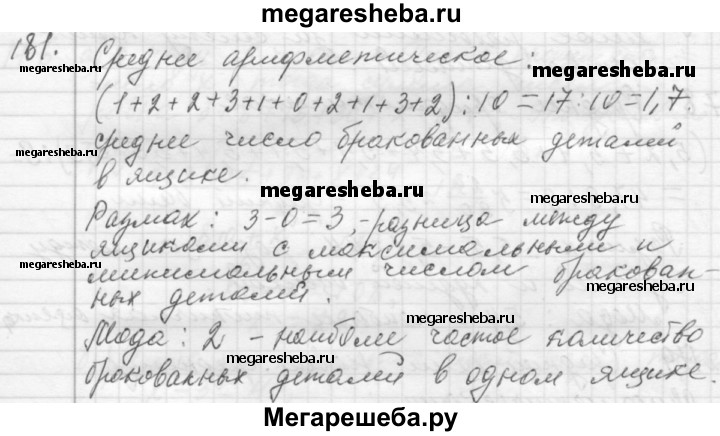 megaresheba.ru
181. Среднее арифметическое:
megaresheba.ru megaresheba.ru
(1+2+2+3+1+0+2+1+3+2):10=17:10=1,7.
среднее число бракованных деталей
megaresheba.ru
в ящике.
megaresheba.ru megaresheba.ru
Размах: 3-0=3, -разница между
ящиками с максимальными и
megaresheba.ru
минимальным числом бракован-
megaresheba.ru
ных деталей.
megaresheba.ru
Мода: 2 - наиболее частое количество
megaresheba.ru
бракованных деталей в одном ящике.
Мегарешеба.ру